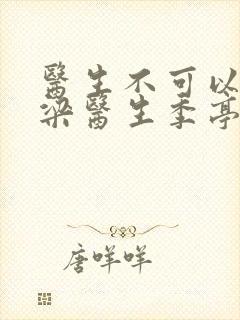 醫生不可以
梁醫生季亭
唐咩咩